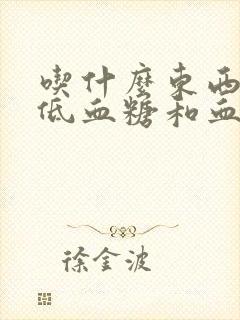 喫什麼東西
低血糖和血
徐金波